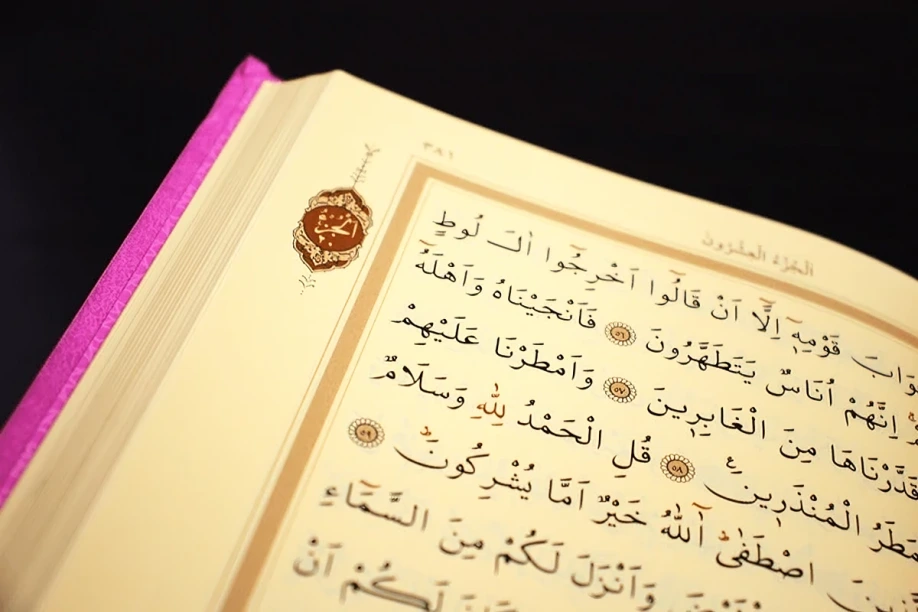 ٣٨١
اَلْجُزْءُ الْعِشْرُونَ
الجزء
وَابَ قَوْمِهٖٓ اِلَّٓا اَنْ قَالُٓوا اَخْرِجُٓوا اٰلَ لُوطٍ
اِنَّهُمْ اُنَاسٌ يَتَطَهَّرُونَ ٥٦ فَاَنْجَيْنَاهُ وَاَهْلَهُٓ
قَدَّرْنَاهَا مِنَ الْغَابِرٖينَ ٥٧ وَاَمْطَرْنَا عَلَيْهِمْ
مَطَرُ الْمُنْذَرٖينَ ٥٨ قُلِ الْحَمْدُ لِلّٰهِ وَسَلَامٌ
اصْطَفٰىۜ آٰللّٰهُ خَيْرٌ اَمَّا يُشْرِكُونَۜ ٥٩
وَاَنْزَلَ لَكُمْ مِنَ السَّمَٓاءِ
لَكُمْ اَنْ